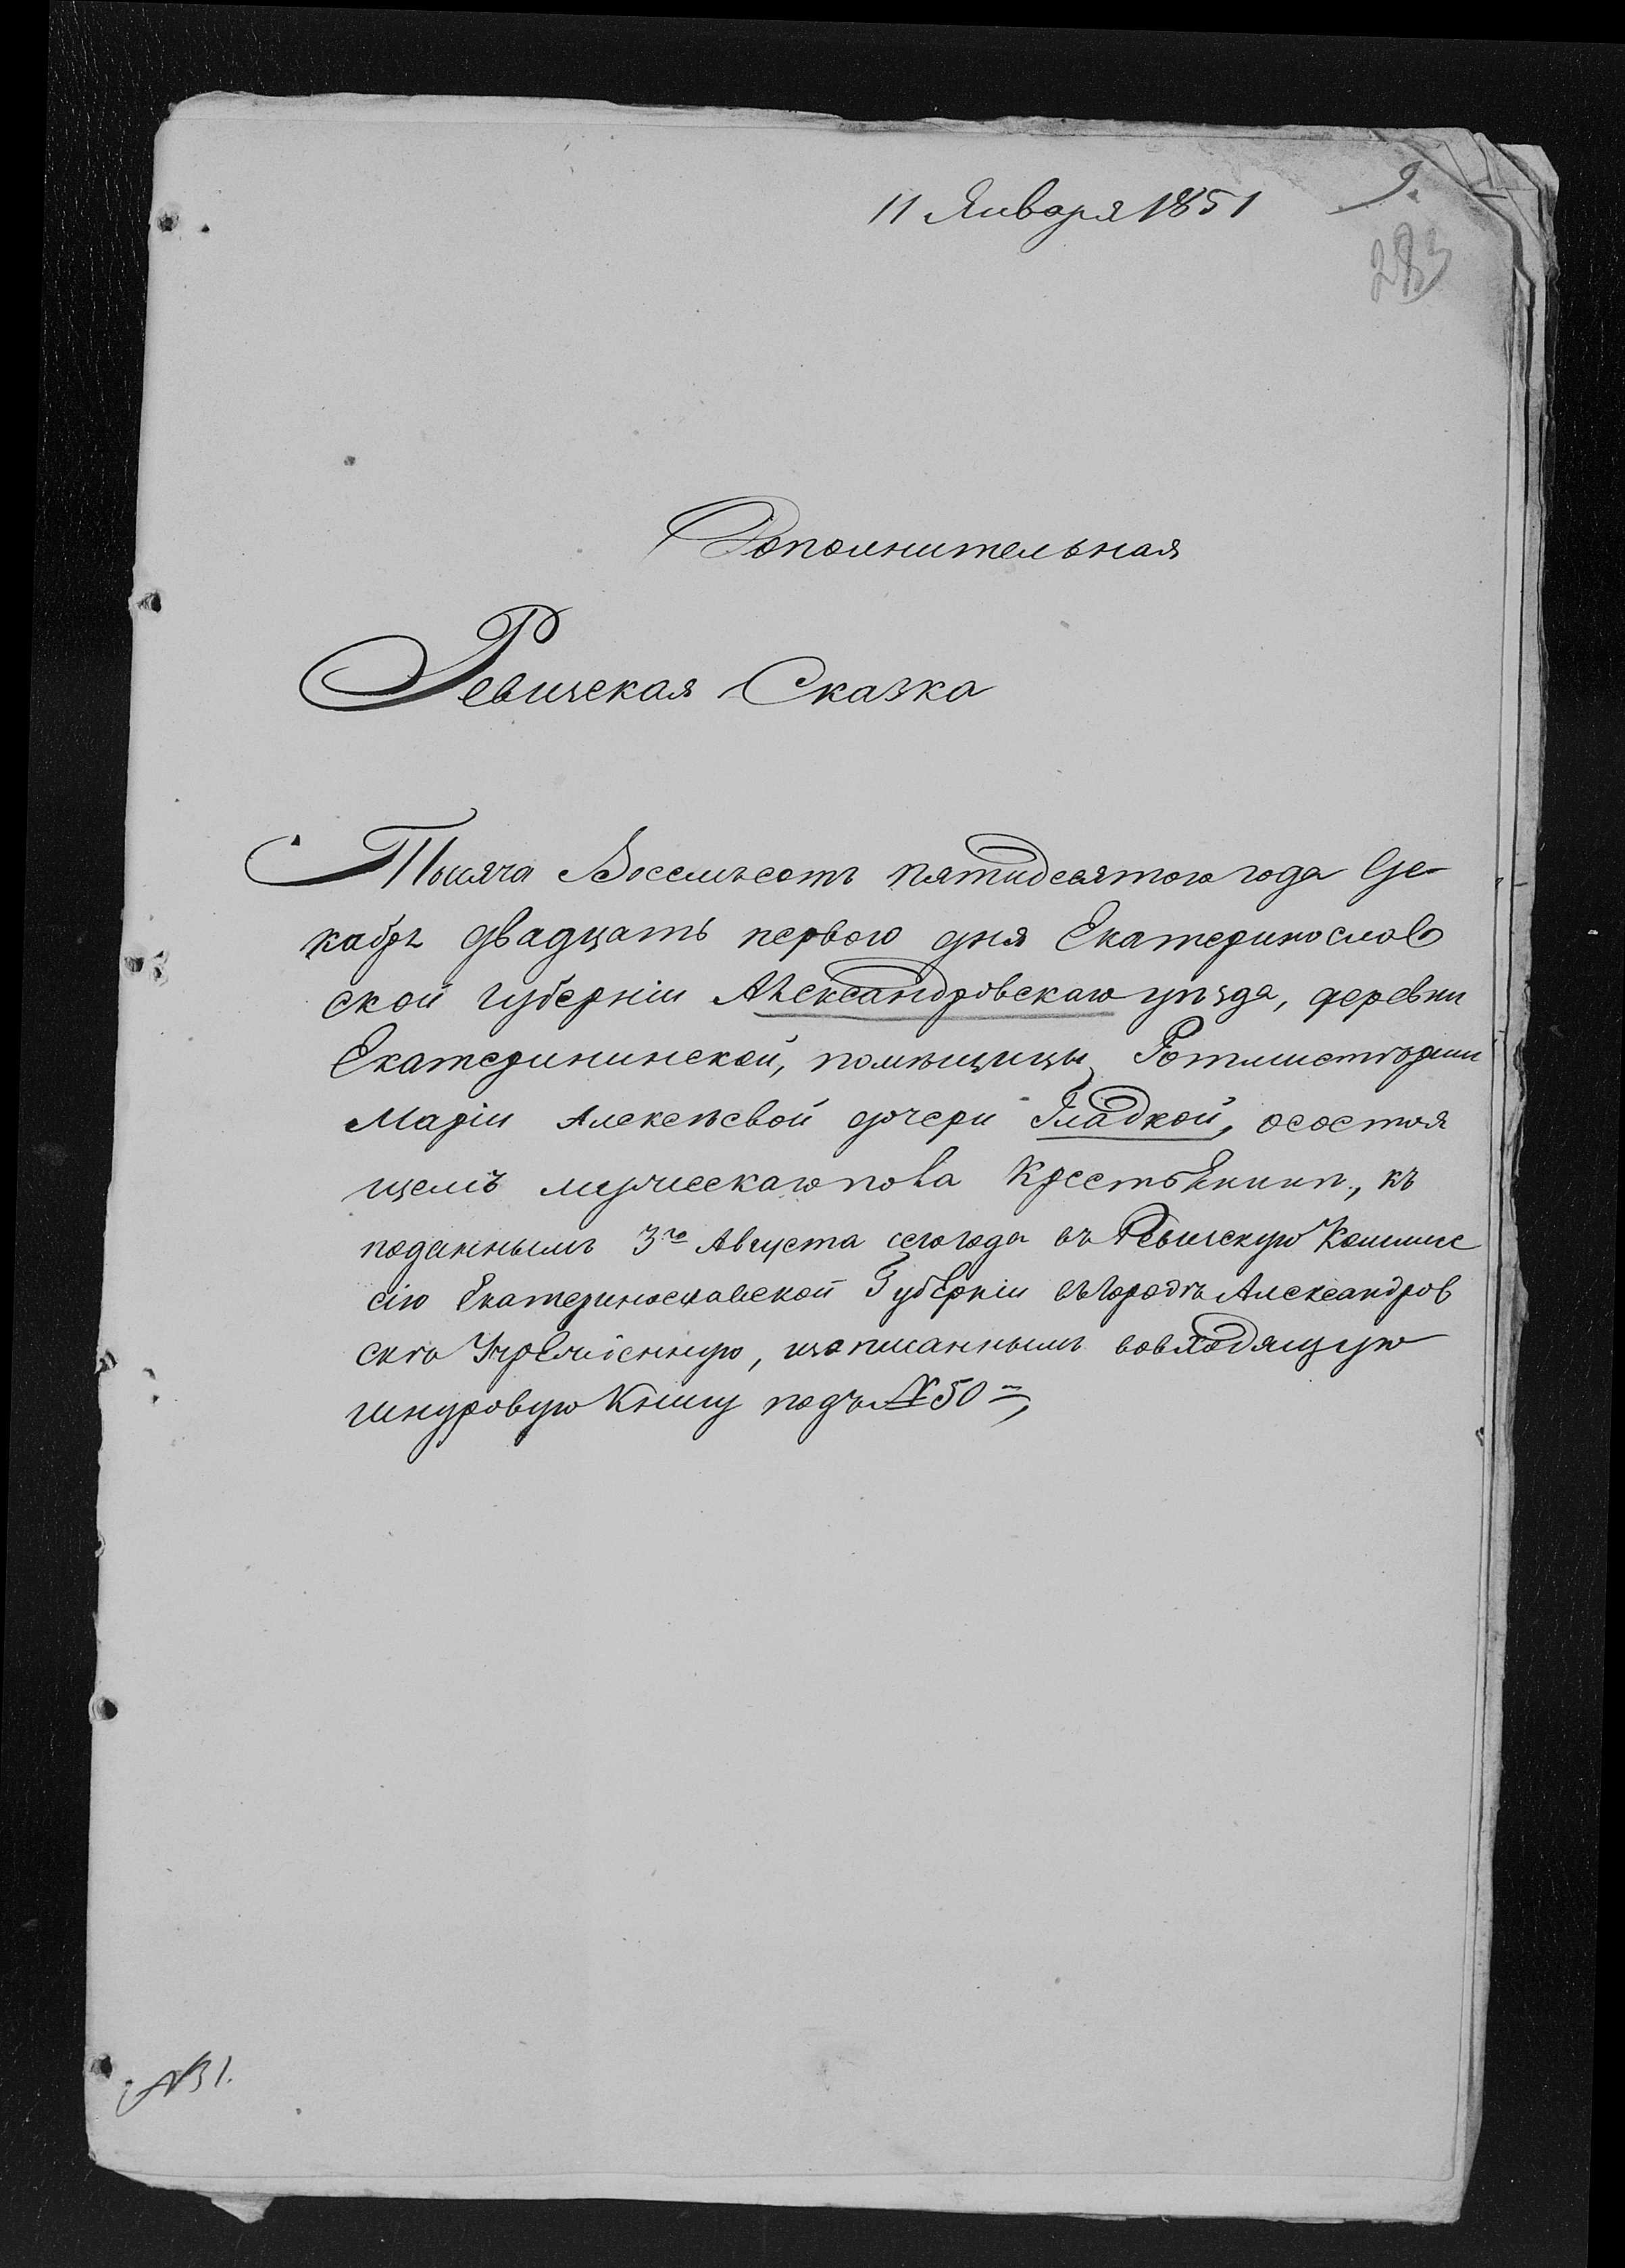 11 Января 1851
9.
283
Дополнительная
Ревизская Сказка
Тысяча Восемьсотъ пятидесятого года Де-
кабря двадцать первого дня Екатеринослав
ской губерніи Александровскаго уѣзда, деревни
Екатерининской, помѣщицы Ротмистрши
Маріи Алексѣевой дочери Гладкой, осостоя
щемъ мужескаго пола Крестьянинѣ, къ
поданнымъ 3го Августа сего года въ Ревизскую Коммис
сію Екатеринославской Губерніи въ городѣ Александров
скѣ Учрежденную, изаписаннымъ вовходящую
шнуровую Книгу подъ № 50 м,
№31.